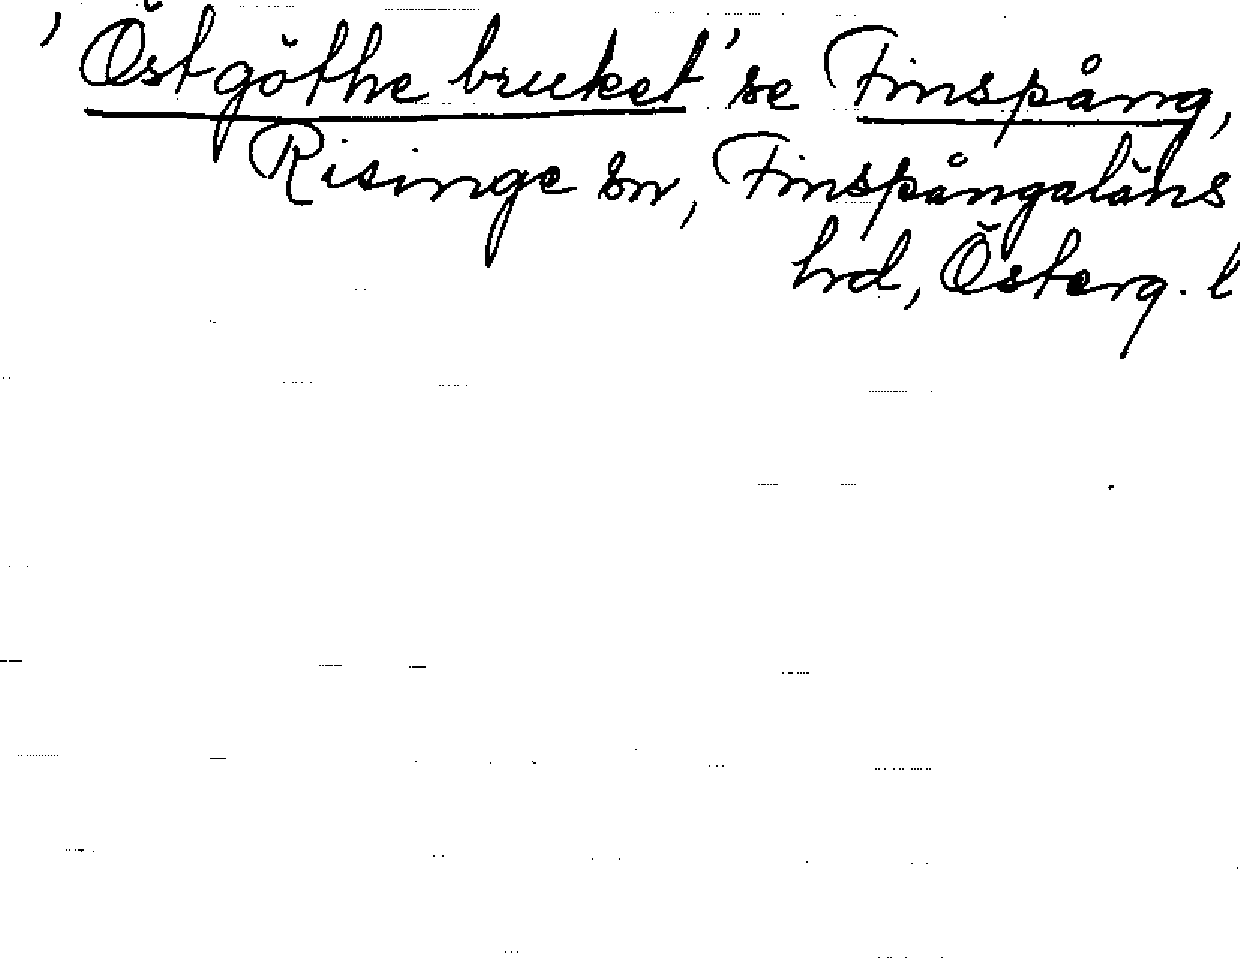 'Östgöthe bruket' se Finspång,
Risinge sn, Finspångaläns
hrd, Österg. l